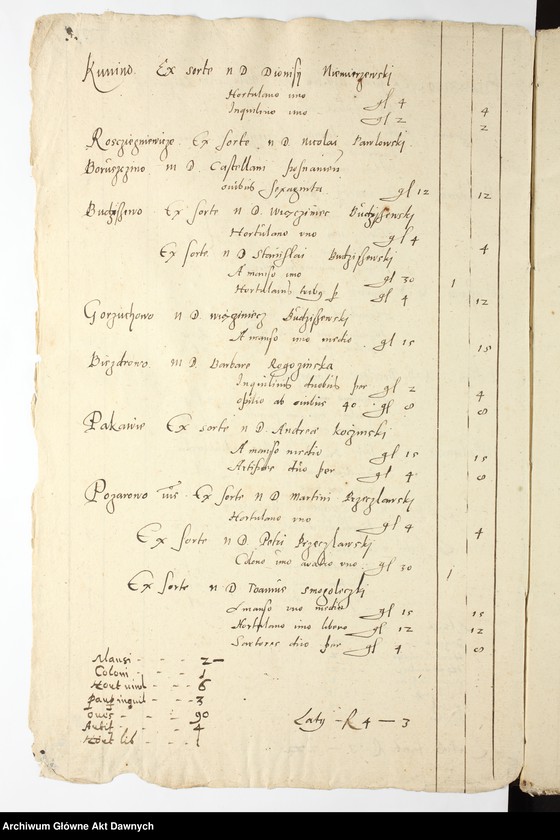 Kunino. Ex sorte n D Dionisy Niemierzewski
Hortulano uno gl 4 4
Inquilino uno gl 2 2
Ex sorte n D. Nicolai Pawlowski
m D. Castellani
ovibus sexaginta gl 12 12
Budzissewo Ex sorte n D. Budzissewski
Hortulano uno gl 4 4
Ex sorte n D Stanislai Budzissewski
A manso uno gl 30 1
Hortulanis tribus p gl 4 12
Gorzuchowo n D. Budzissewski
A manso uno medio gl 15 15
Biezdrowo. m D. Barbare Rogozinska
Inquilinis duobus per gl 2 4
opilio ab ovibus 40 gl 8 8
Pakawie Ex sorte n D. Andreae
A manso medio gl 15 15
Artifice duo per gl 4 8
Pozarowo Ex sorte n D Martini Przeczlawski
Hortulano uno gl 4 4
Ex sorte n D Petri Przeczlawski
Colono uno aratro uno gl 30 1
Ex sorte n D Joannis Smogoleczki
A manso uno medio gl 15 15
Hortulano uno libero gl 12 12
Sartores duo per gl 4 8
Mansi - - - 2 -
Coloni - - - 1
Hort - - 6
- - 3
oves - - - 90
Artif - - - 4
Hort lib - - - 1
Laty - R 4 - 3
Archiwum Główne Akt Dawnych